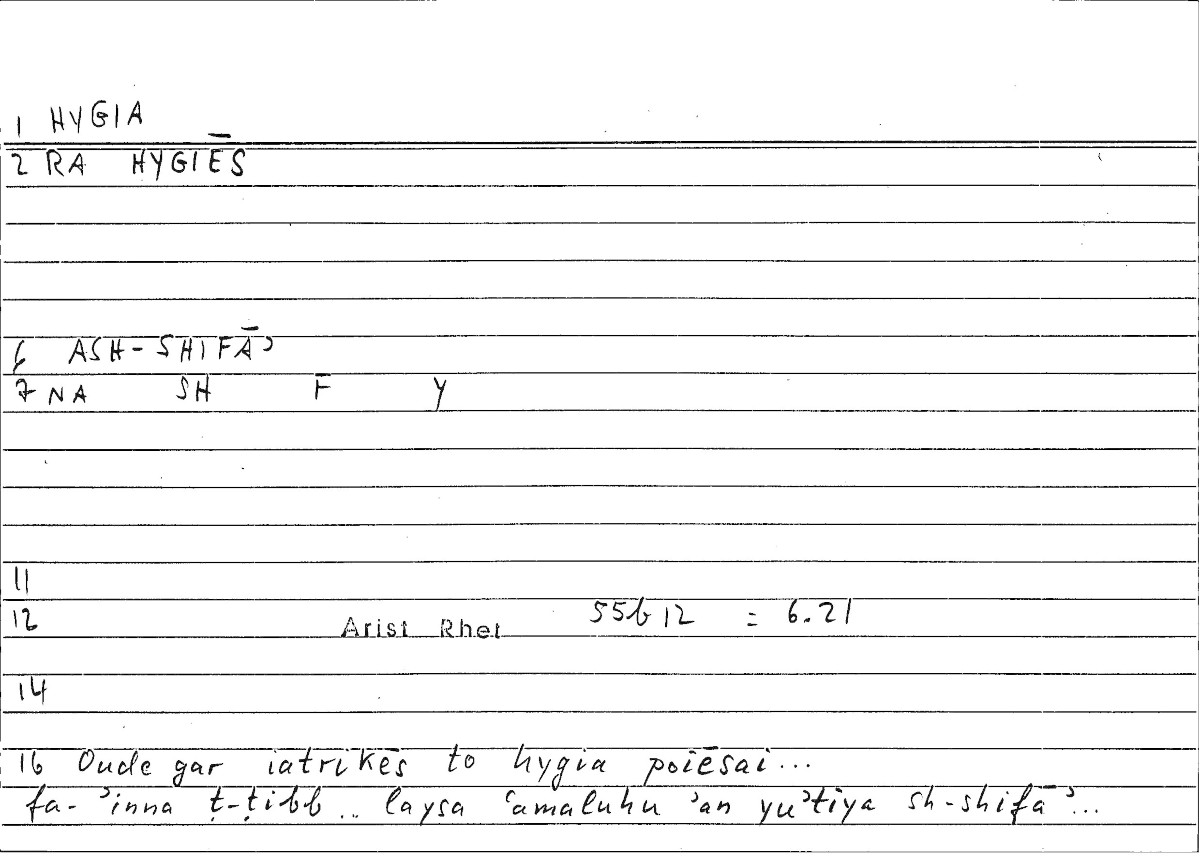 1 HYGIA
2 RA HYGIĒS
6 ASH-SHIFĀʾ
7 NA SH F Y
11
12 Arist Rhet 55b12 = 6.21
14
16 Oude gar iatrikēs to hygia poiēsai...
fa-ʾinna ṭ-ṭibb .. laysa ʿamaluhu ʾan yuʾtiya sh-shifāʾ...